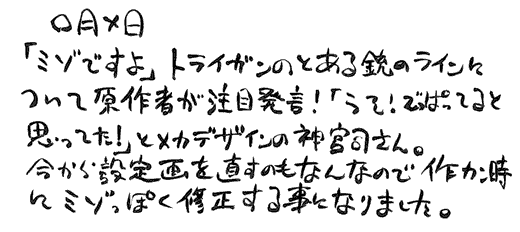 〇月×日
「ミゾですよ」トライガンのとある銃のラインに
ついて原作者が注目発言!「うそ!でっぱってると
思ってた!」とメカデザインの神宮司さん。
今から設定画を直すのもなんなので作カン時
にミゾっぽく修正する事になりました。